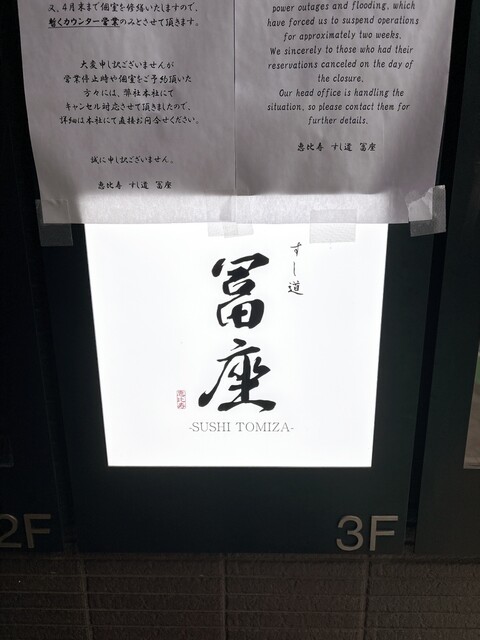 又、4月末まで個室を修繕いたしますので、
暫くカウンター営業のみとさせて頂きます。
大変申し訳ございませんが
営業停止時や個室をご予約頂いた
方々には、弊社本社にて
キャンセル対応させて頂きましたので、
詳細は本社にて直接お問合せください。
誠に申し訳ございません。
恵比寿 すし道 冨座
power outages and flooding, which
have forced us to suspend operations
for approximately two weeks.
We sincerely to those who had their
reservations canceled on the day of
the closure.
Our head office is handling the
situation, so please contact them for
further details.
恵比寿 すし道 冨座
すし道
冨座
恵比寿
-SUSHI TOMIZA-
2F
3F